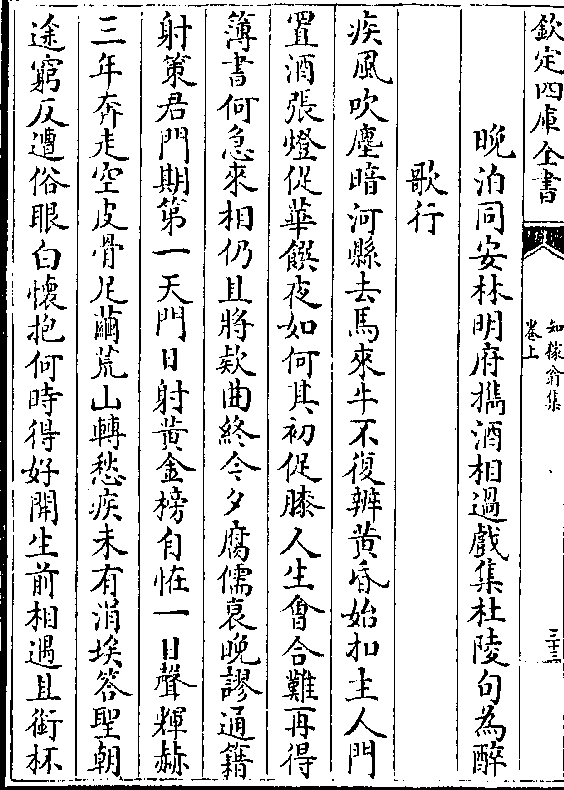 欽定四庫全書
知稼翁集
卷上
三十三
晚泊同安林明府攜酒相過戲集杜陵句為醉
歌行
疾風吹塵暗河縣去馬來牛不復辨黃昏始扣主人門
置酒張燈促華饌夜如何其初促膝人生會合難再得
簿書何急來相仍且將欵曲終今夕腐儒衰晚謬通籍
射策君門期第一天門日射黃金榜自怪一日聲輝赫
三年奔走空皮骨足繭荒山轉愁疾未有涓埃答聖朝
途窮反遭俗眼白懷抱何時得好開生前相遇且銜杯